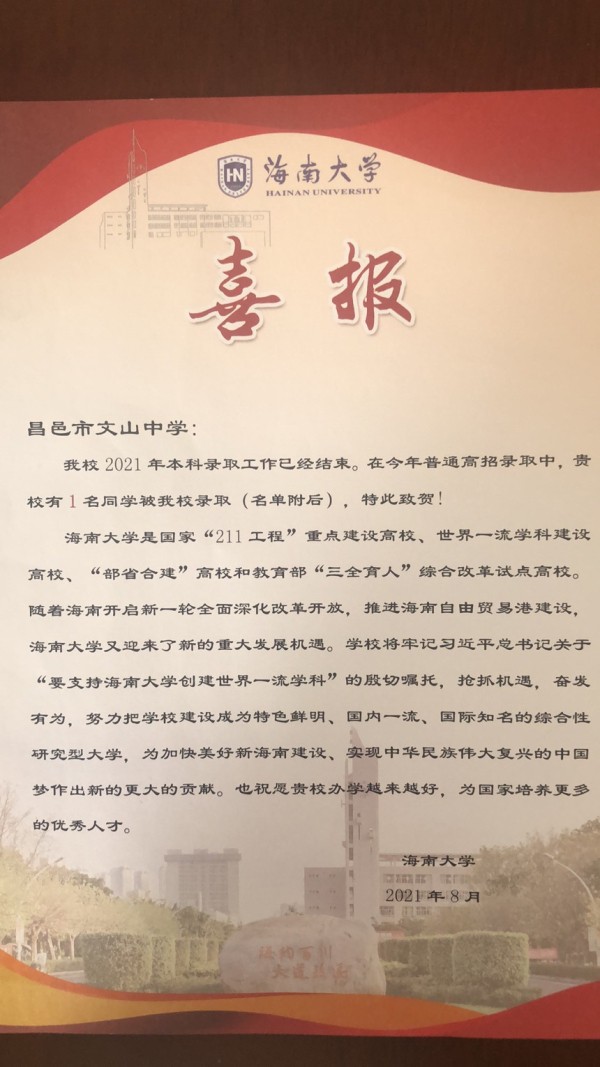 海南大学
HAINAN UNIVERSITY
喜报
昌邑市文山中学：
我校 2021 年本科录取工作已经结束。在今年普通高招录取中，贵
校有 1 名同学被我校录取（名单附后），特此致贺！
海南大学是国家“211 工程”重点建设高校、世界一流学科建设
高校、“部省合建”高校和教育部“三全育人”综合改革试点高校。
随着海南开启新一轮全面深化改革开放，推进海南自由贸易港建设，
海南大学又迎来了新的重大发展机遇。学校将牢记习近平总书记关于
“要支持海南大学创建世界一流学科”的殷切嘱托，抢抓机遇，奋发
有为，努力把学校建设成为特色鲜明、国内一流、国际知名的综合性
研究型大学，为加快美好新海南建设、实现中华民族伟大复兴的中国
梦作出新的更大的贡献。也祝愿贵校办学越来越好，为国家培养更多
的优秀人才。
海南大学
2021 年 8 月
海纳百川
大道致远